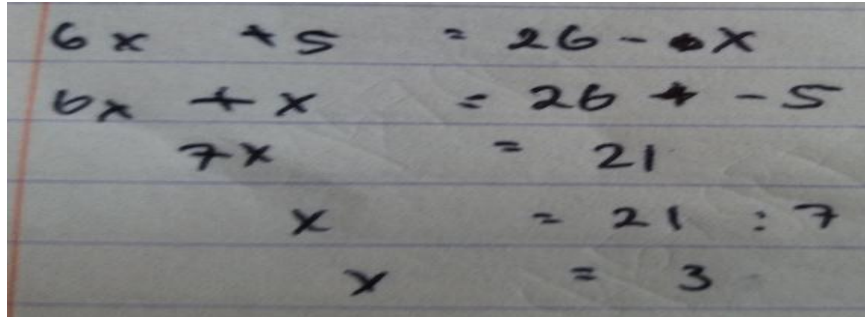 6x + 5 = 26 - x
6x + x = 26 - 5
7x = 21
x = 21 : 7
x = 3